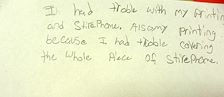 I had troble with my printing
and StirePhone. Alsomy printing
because I had troble covering
the whole Piece of StirePhone.